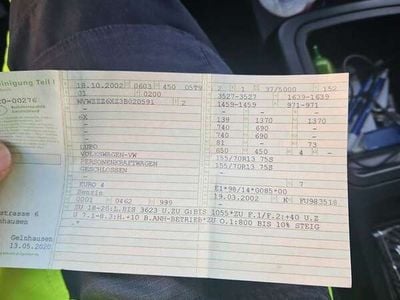 inigung Teil I
18.10.2002 0603 450 05T9 2 1 37/5000 152
01 0200 3527-3527 1639-1639
20-00276
WVWZZZ6XZ3B020591 2 1459-1459 971-971
- - -
6X 139 1370 1370
- 740 690 -
- 740 690 -
LUPO 81 - 73
VOLKSWAGEN-VW 650 450 4 -
PERSONENKRAFTWAGEN 155/70R13 75S
GESCHLOSSEN 155/70R13 75S
- - 7
EURO 4 E1*98/14*0085*00
Benzin 19.03.2002 K FU983518
0001 0462 999
strasse 6
ZU 18-20:L.BIS 3623 U.ZU G:BIS 1055*ZU F.1/F.2:+40 U.Z
nhausen
U 7.1-8.3:H.+10 B.ANH-BETRIEB*ZU O.1:800 BIS 10% STEIG
.*
Gelnhausen
13.05.2020